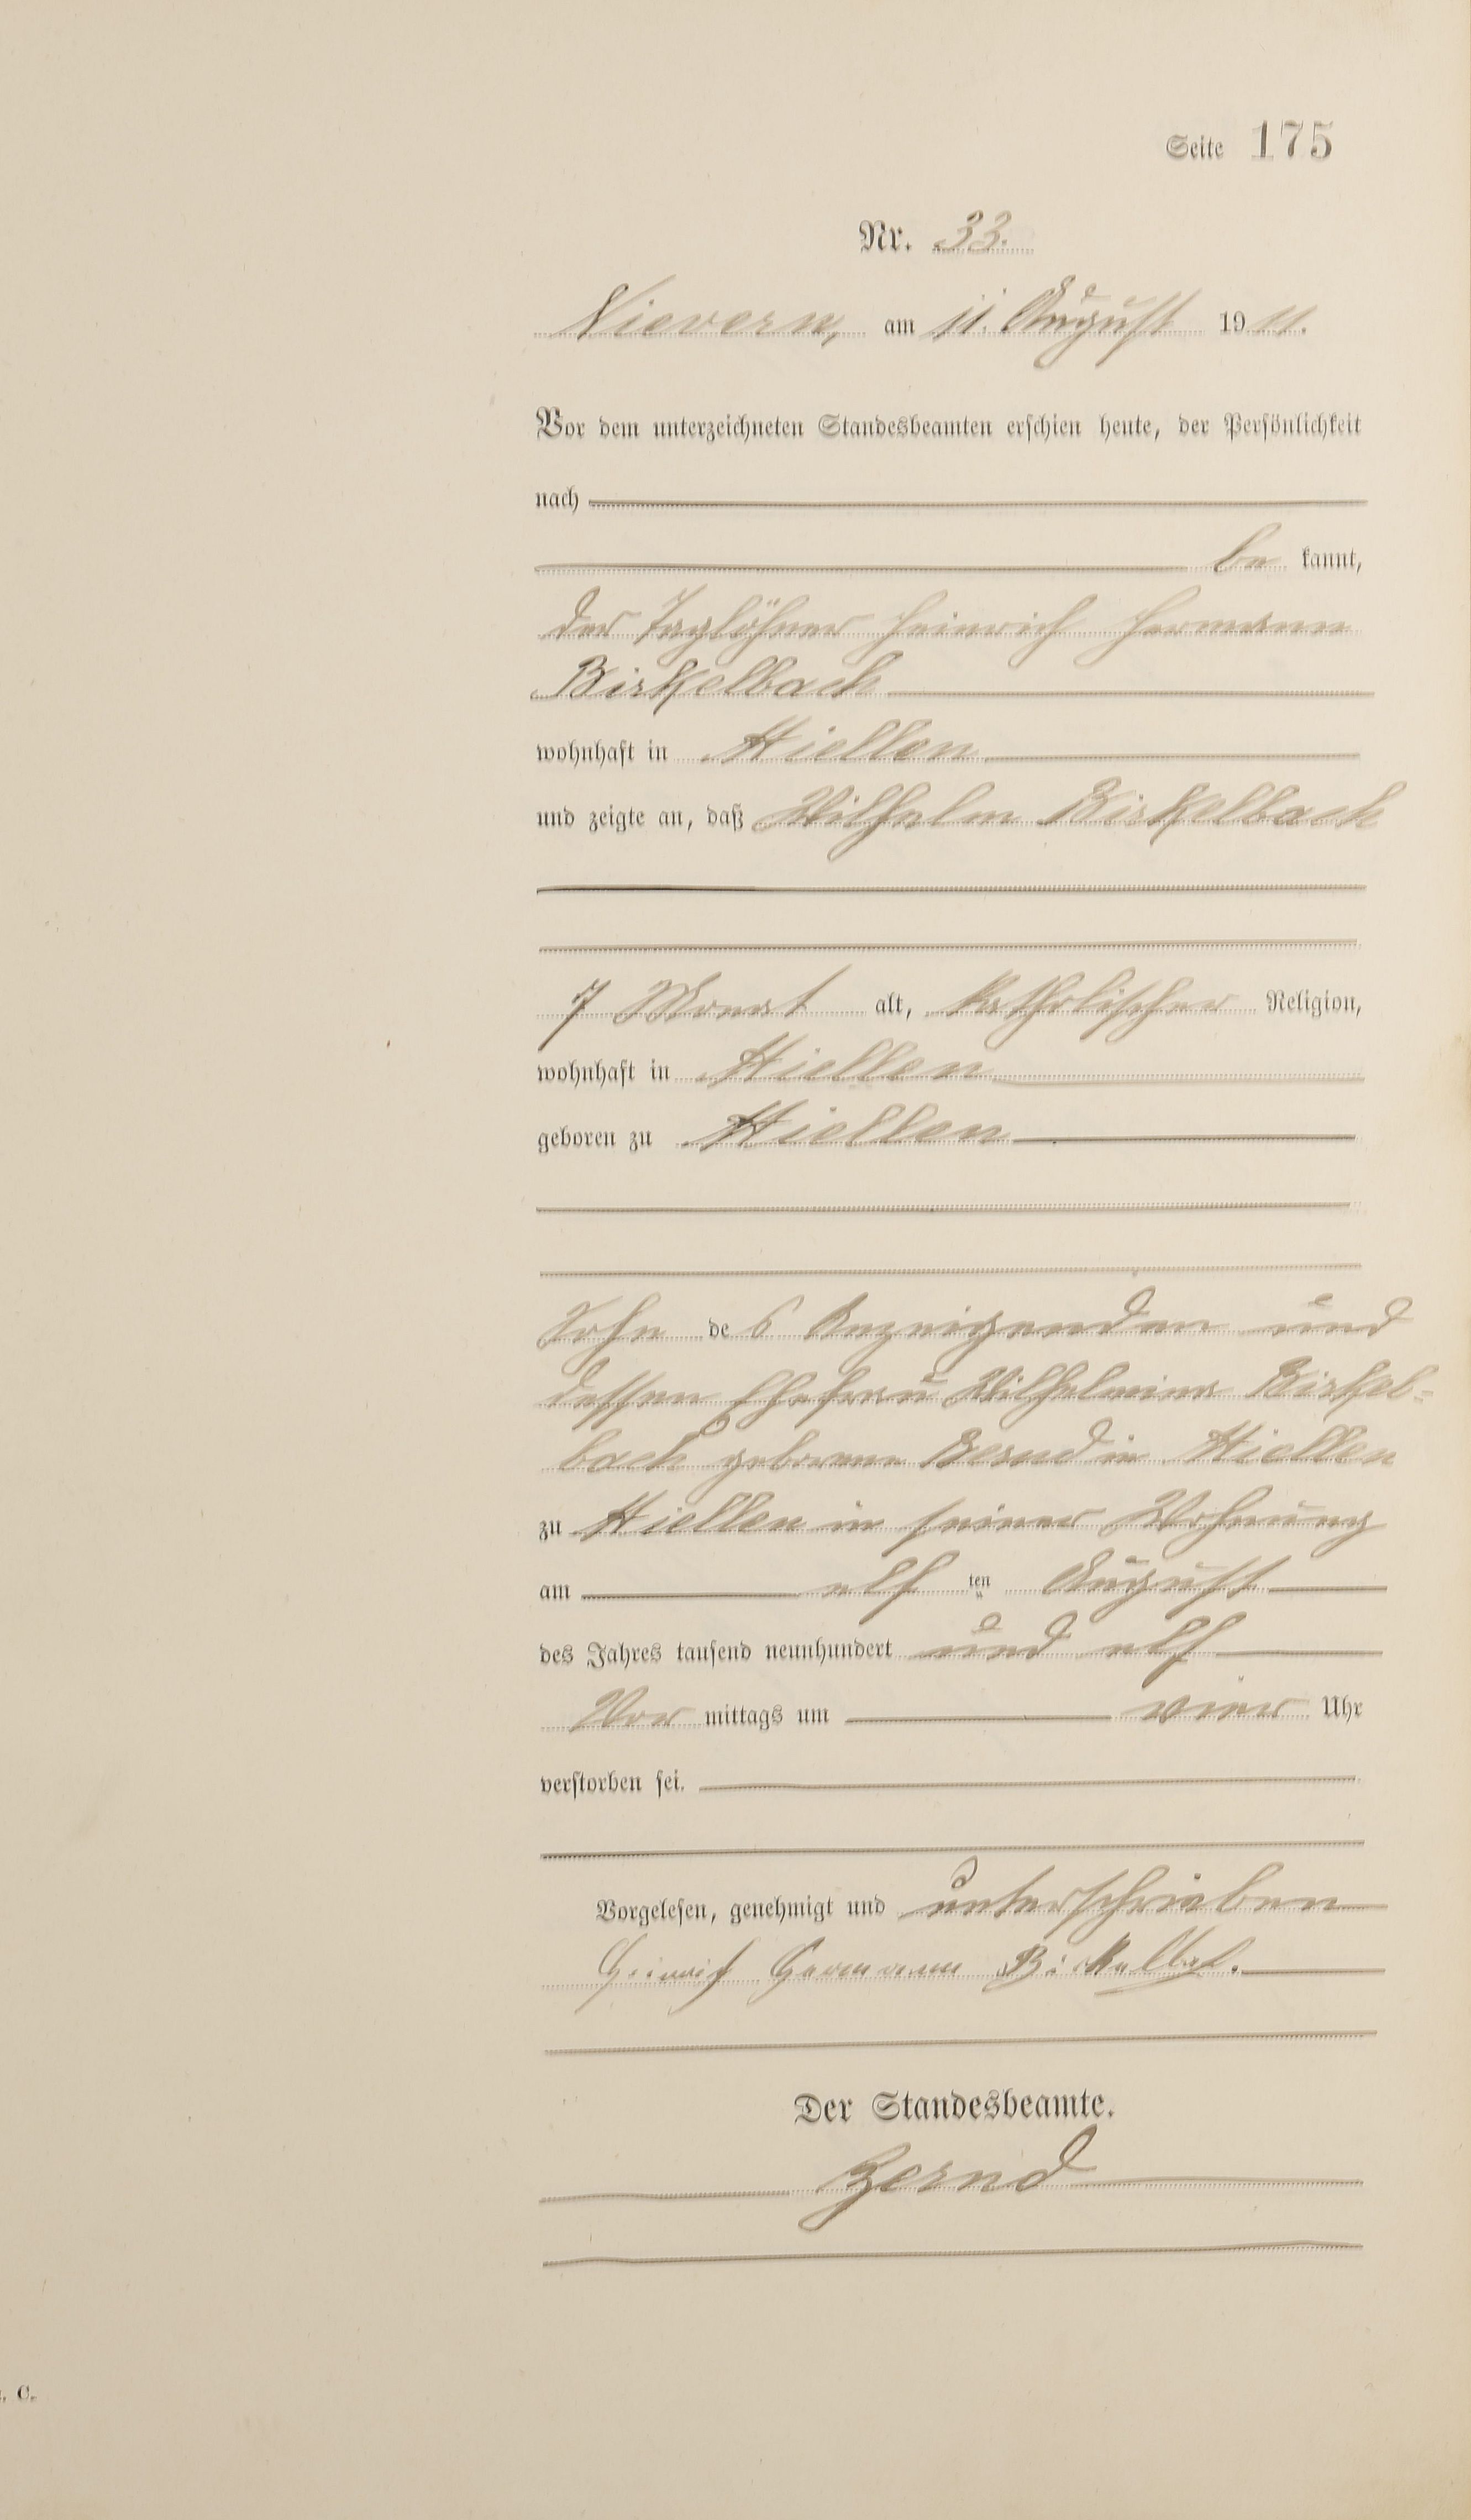 Seite 175
Nr. 33.
Nievern, am 11. August 1911.
Vor dem unterzeichneten Standesbeamten erschien heute, der Persönlichkeit
nach
be kannt,
der Taglöhner Heinrich Hermann
Birkelbach
wohnhaft in Miellen
und zeigte an, daß Wilhelm Birkelbach
7 Monat alt, katholischer Religion,
wohnhaft in Miellen
geboren zu Miellen
Sohn des Anzeigenden und
dessen Ehefrau Wilhelmina Birkel-
bach geborene Bernd in Miellen
zu Miellen in seiner Wohnung
am elf ten August
des Jahres tausend neunhundert und elf
Vor mittags um vier Uhr
verstorben sei.
Vorgelesen, genehmigt und unterschrieben
Heinrich Hermann Birkelbach.
Der Standesbeamte.
Bernd
. C.